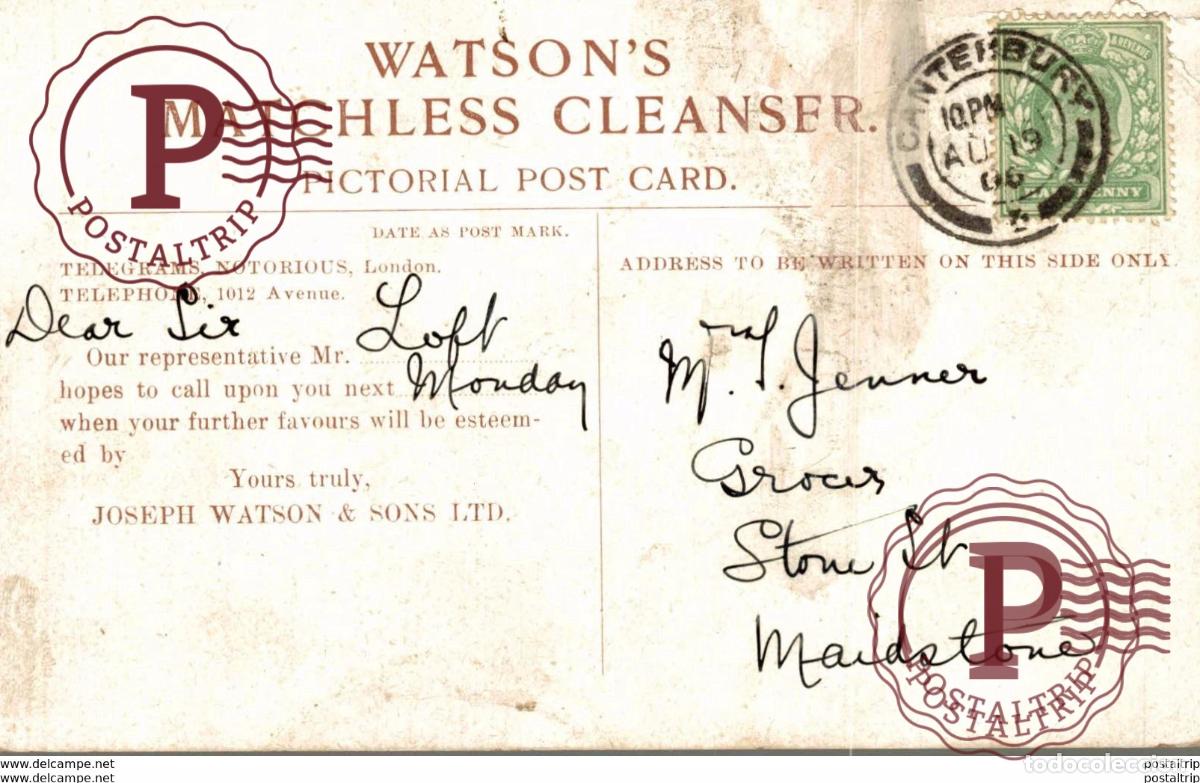 WATSON'S
MATCHLESS CLEANSER.
PICTORIAL POST CARD.
CANTERBURY
10.PM
AU 19
& REVENUE
HALFPENNY
P
POSTALTRIP
DATE AS POST MARK.
TELEGRAMS, NOTORIOUS, London.
TELEPHONE, 1012 Avenue.
Dear Sir
Our representative Mr. Loft
hopes to call upon you next Monday
when your further favours will be esteem-
ed by
Yours truly,
JOSEPH WATSON & SONS LTD.
ADDRESS TO BE WRITTEN ON THIS SIDE ONLY.
Jenner
Grocer
Stone St
Maidstone
P
POSTALTRIP
POSTALTRIP
todocoleccion
www.bbnnn.com
www.bbnnn.com
postaltrip
postaltrip